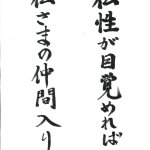 仏性が目覚めれば
仏さまの仲間入り